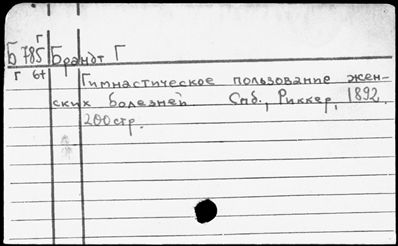 Г
Б 785 Брандт Г
Г 61
Гимнастическое пользование жен-
ских болезней. Спб., Риккер, 1892.
200 стр.